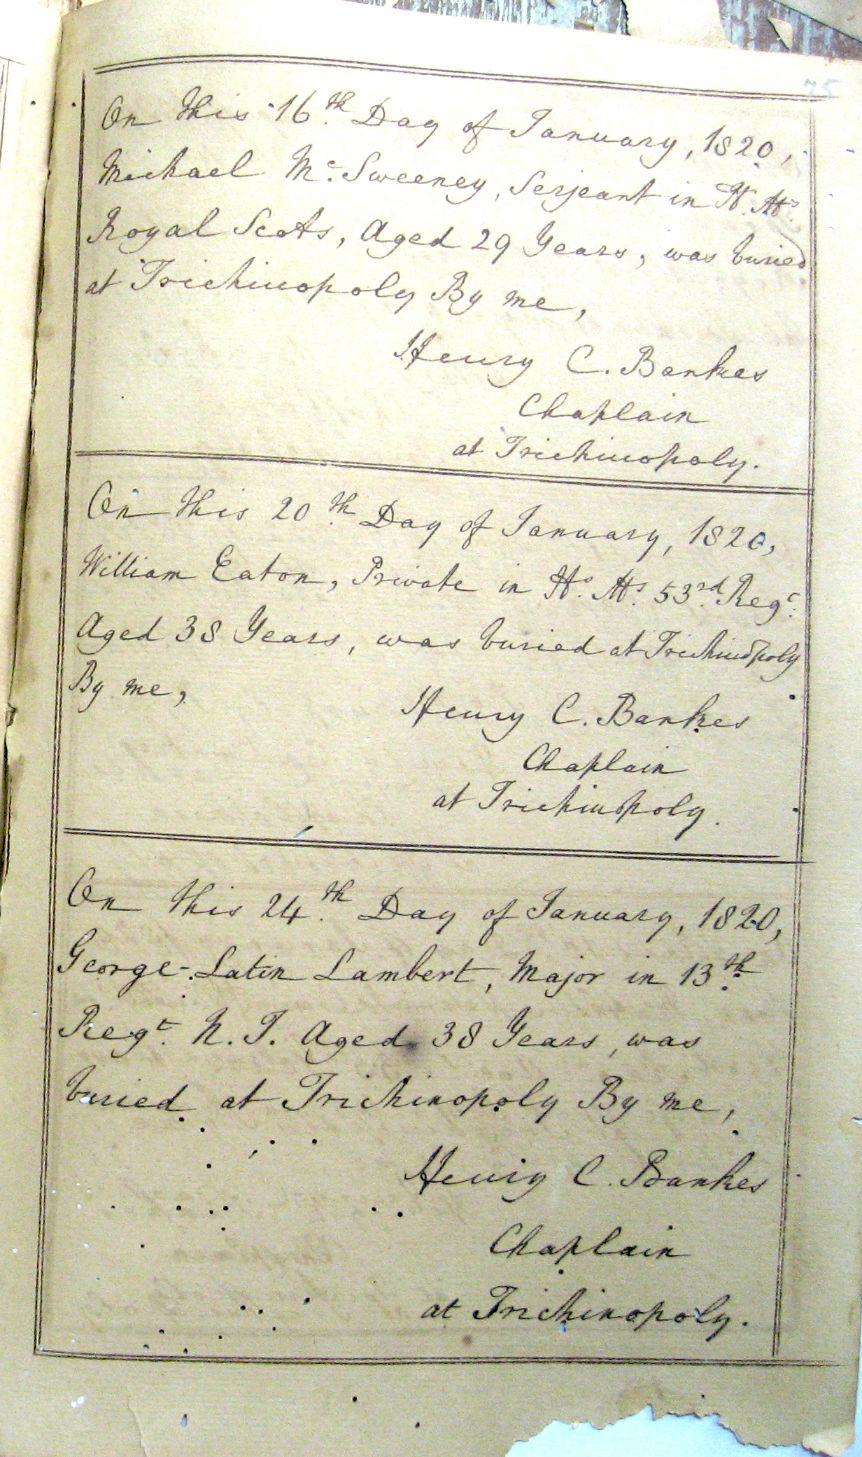 75
On this 16th Day of January, 1820,
Michael Mc. Sweeney, Serjeant in H. Ms
Royal Scots, Aged 29 Years, was buried
at Trichinopoly By me,
Henry C. Bankes
Chaplain
at Trichinopoly.
On this 20th Day of January, 1820,
William Eaton, Private in Hs. Ms. 53rd. Regt.
Aged 38 Years, was buried at Trichinopoly
By me,
Henry C. Bankes
Chaplain
at Trichinopoly.
On this 24th Day of January, 1820,
George Latin Lambert, Major in 13th
Regt. N. I. Aged 38 Years, was
buried at Trichinopoly By me,
Henry C. Bankes
Chaplain
at Trichinopoly.